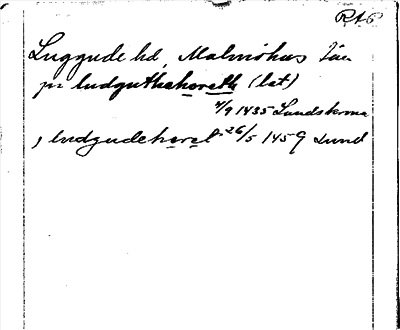 RAP
Luggude hd, Malmöhus län
pr ludguthahæreth (lat)
4/9 1435 Landskrona
, ludgudeheret 26/5 1459 Lund